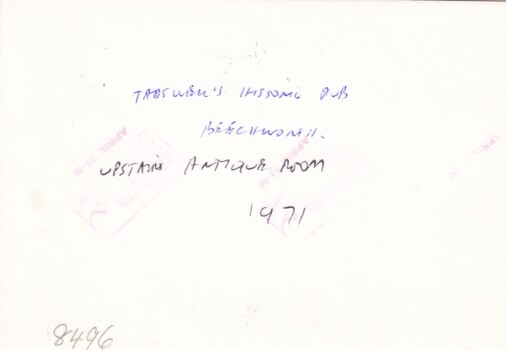 TANSWELL'S HISTORIC PUB
BEECHWORTH.
UPSTAIRS ANTIQUE ROOM
1971
APRIL 71M
8496